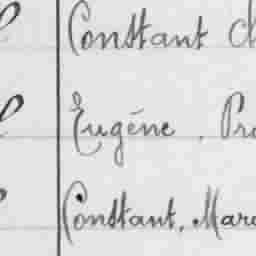 Constant
Eugène. Pro
Constant, Marc